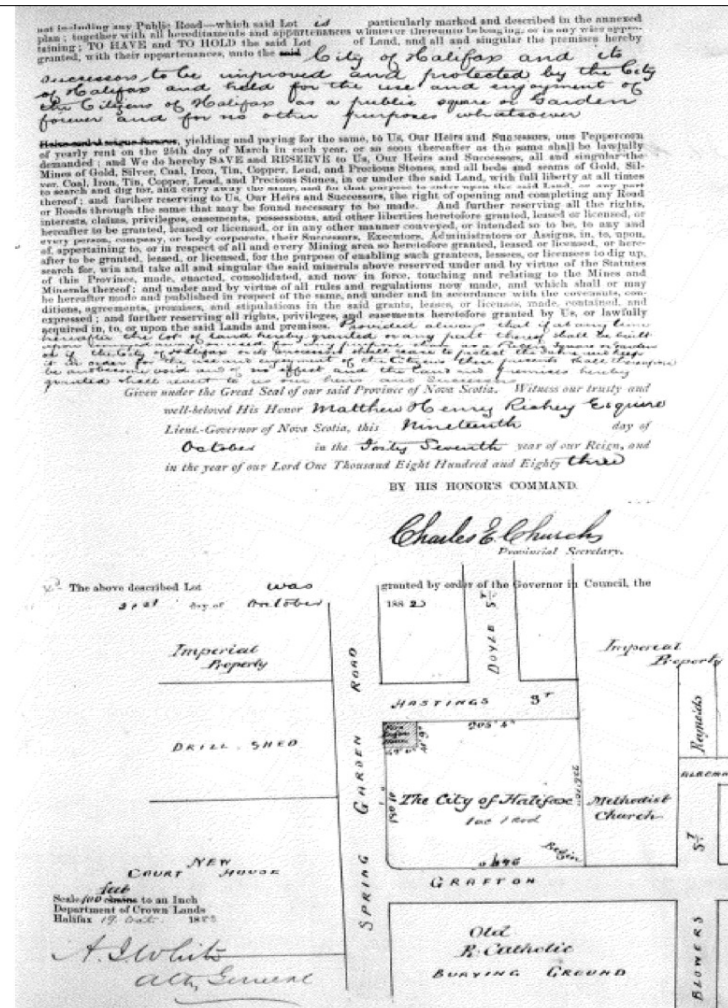 not including any Public Road—which said Lot is particularly marked and described in the annexed
plan; together with all hereditaments and appurtenances whatever thereunto belonging, or in any wise apper-
taining; TO HAVE and TO HOLD the said Lot of Land, and all and singular the premises hereby
granted, with their appurtenances, unto the said City of Halifax and its
successors to be improved and protected by the City
of Halifax and held for the use and enjoyment of
the Citizens of Halifax as a public square or Garden
forever and for no other purposes whatsoever
yielding and paying for the same, to Us, Our Heirs and Successors, one Peppercorn
of yearly rent on the 25th day of March in each year, or so soon thereafter as the same shall be lawfully
demanded; and We do hereby SAVE and RESERVE to Us, Our Heirs and Successors, all and singular the
Mines of Gold, Silver, Coal, Iron, Tin, Copper, Lead, and Precious Stones, and all beds and seams of Gold, Sil-
ver, Coal, Iron, Tin, Copper, Lead, and Precious Stones, in or under the said Land, with full liberty at all times
to search and dig for, and carry away the same, and for that purpose to enter upon the said Land, or any part
thereof; and further reserving to Us, Our Heirs and Successors, the right of opening and completing any Road
or Roads through the same that may be found necessary to be made. And further reserving all the rights,
interests, claims, privileges, easements, possessions, and other liberties heretofore granted, leased or licensed, or
hereafter to be granted, leased or licensed, or in any other manner conveyed, or intended so to be, to any and
every person, company, or body corporate, their Successors, Executors, Administrators or Assigns, in, to, upon,
of, appertaining to, or in respect of all and every Mining area so heretofore granted, leased or licensed, or here-
after to be granted, leased, or licensed, for the purpose of enabling such grantees, lessees, or licensees to dig up,
search for, win and take all and singular the said minerals above reserved under and by virtue of the Statutes
of this Province, made, enacted, consolidated, and now in force, touching and relating to the Mines and
Minerals thereof; and under and by virtue of all rules and regulations now made, and which shall or may
be hereafter made and published in respect of the same, and under and in accordance with the covenants, con-
ditions, agreements, promises, and stipulations in the said grants, leases, or licenses, made, contained, and
expressed; and further reserving all rights, privileges, and easements heretofore granted by Us, or lawfully
acquired in, to, or upon the said Lands and premises. Provided always that if at any time
hereafter the lot of land hereby granted or any part thereof shall be built
upon or used for any purpose than as a Public Square or Garden
or if the City of Halifax or its successors shall cease to protect the same and keep
it in order for the use and enjoyment of the Citizens these presents shall thereupon
be and become void and of no effect and the land and premises hereby
granted shall revert to us our heirs and Successors
Given under the Great Seal of our said Province of Nova Scotia. Witness our trusty and
well-beloved His Honor Matthew Henry Richey Esquire
Lieut.-Governor of Nova Scotia, this Nineteenth day of
October in the Forty Seventh year of our Reign, and
in the year of our Lord One Thousand Eight Hundred and Eighty three
BY HIS HONOR'S COMMAND.
Charles E. Church
Provincial Secretary.
The above described Lot was granted by order of the Governor in Council, the
day of October 188
Imperial
Property
DRILL SHED
NEW
COURT HOUSE
SPRING GARDEN ROAD
DOYLE ST
HASTINGS ST
Imperial
Property
Reynolds
205' 4"
The City of Halifax
1 ac 1 rod
Methodist
Church
GRAFTON
ST
Old
R. Catholic
BURYING GROUND
BLOWERS
Scale 100 feet to an Inch
Department of Crown Lands
Halifax 19 Oct. 188
A. J. White
Atty General